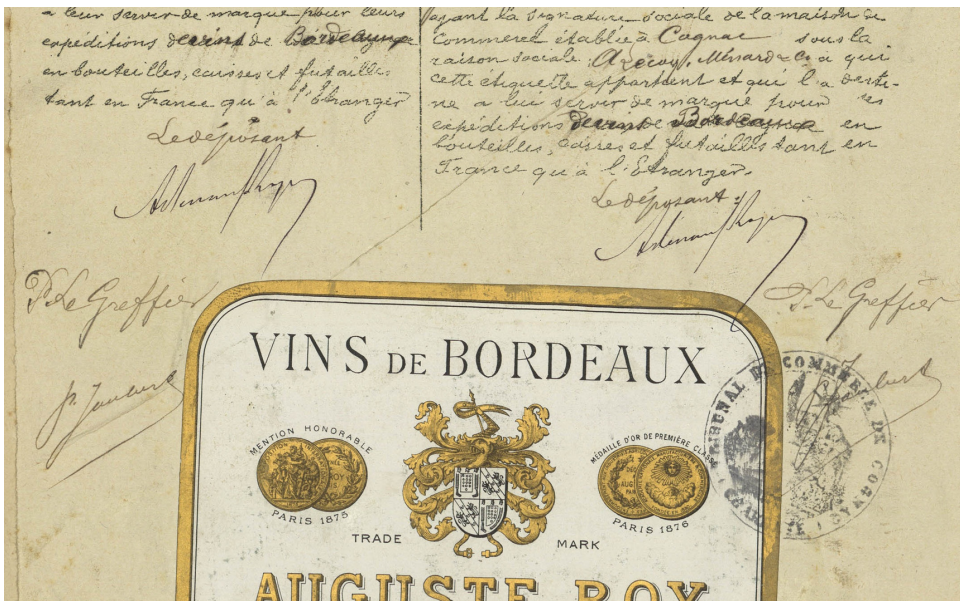 à leur servir de marque pour leurs
expéditions de vins de Bordeaux
en bouteilles, caisses et futailles
tant en France qu'à l'Etranger
Le déposant
ayant la signature sociale de la maison de
Commerce établie à Cognac sous la
raison sociale Ménard & C. à qui
cette étiquette appartient et qui l'a desti-
ne a lui servir de marque pour ses
expéditions de vins de Bordeaux en
bouteilles, caisses et futailles tant en
France qu'à l'Etranger.
Le déposant.
P. Le Greffier
P. Le Greffier
VINS DE BORDEAUX
MENTION HONORABLE
PARIS 1875
MÉDAILLE D'OR DE PREMIÈRE CLASSE
PARIS 1876
TRADE MARK
AUGUSTE ROY
TRIBUNAL DE COMMERCE DE COGNAC